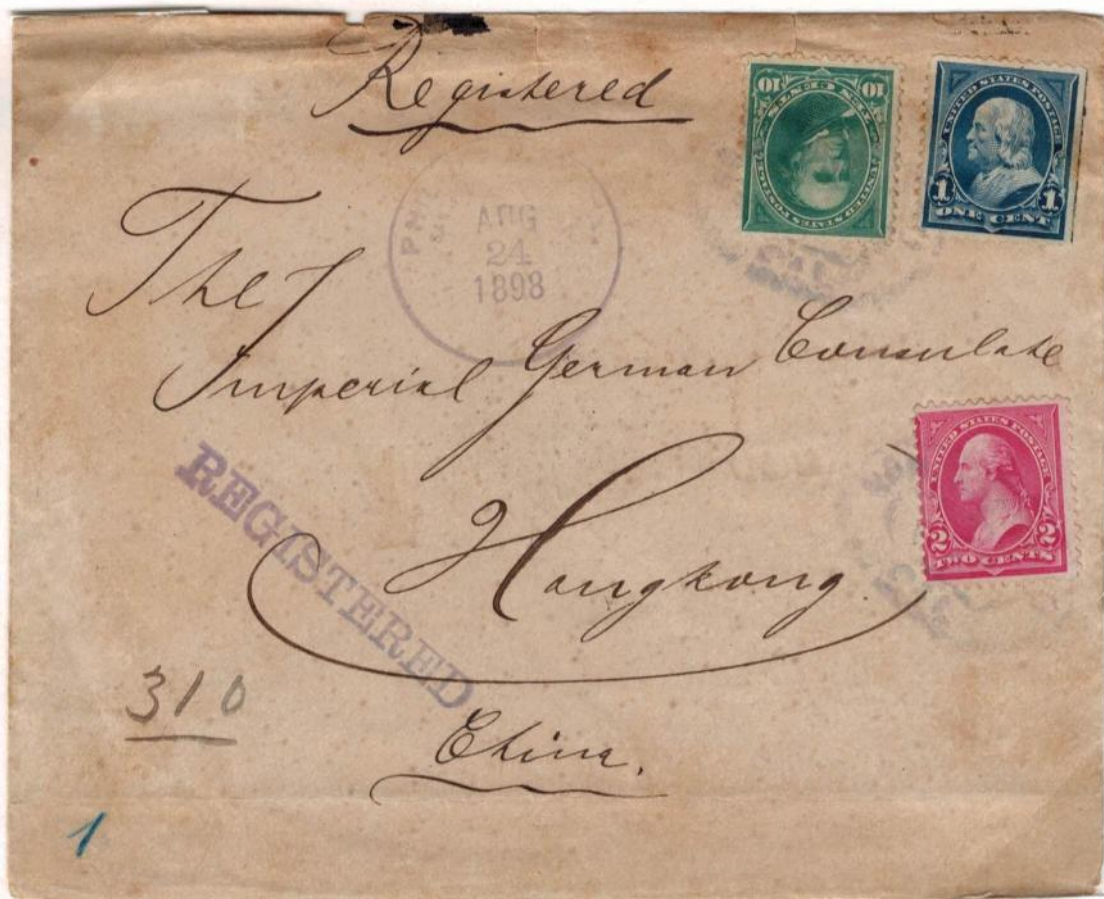 Registered
10 TEN CENTS 10
UNITED STATES POSTAGE
UNITED STATES POSTAGE
1 1
ONE CENT
AUG
24
1898
The
Imperial German Consulate
UNITED STATES POSTAGE
2 2
TWO CENTS
REGISTERED
Hongkong
310
China.
1